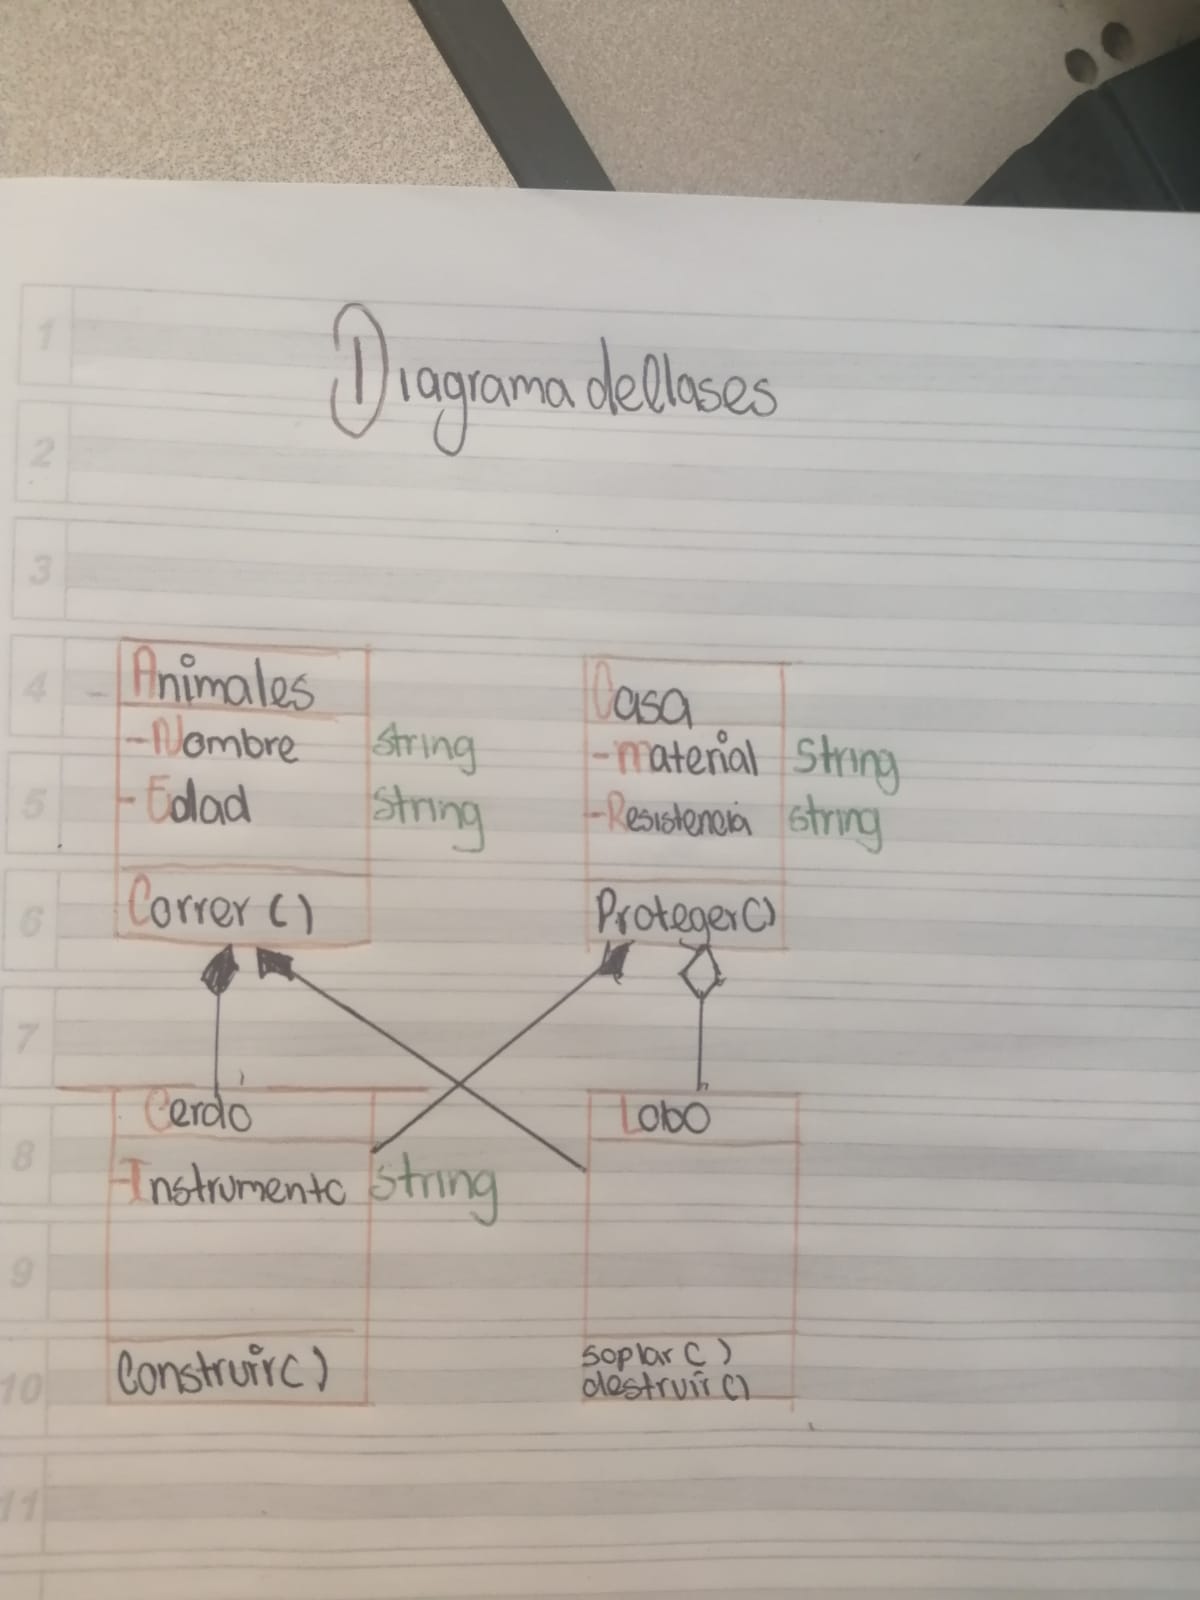 Diagrama de Clases
1
2
3
4
5
6
7
8
9
10
11
Animales
-Nombre String
-Edad String
Correr ()
Casa
-material String
-Resistencia string
Proteger()
Cerdo
-Instrumento String
Construir()
Lobo
soplar ()
destruir ()